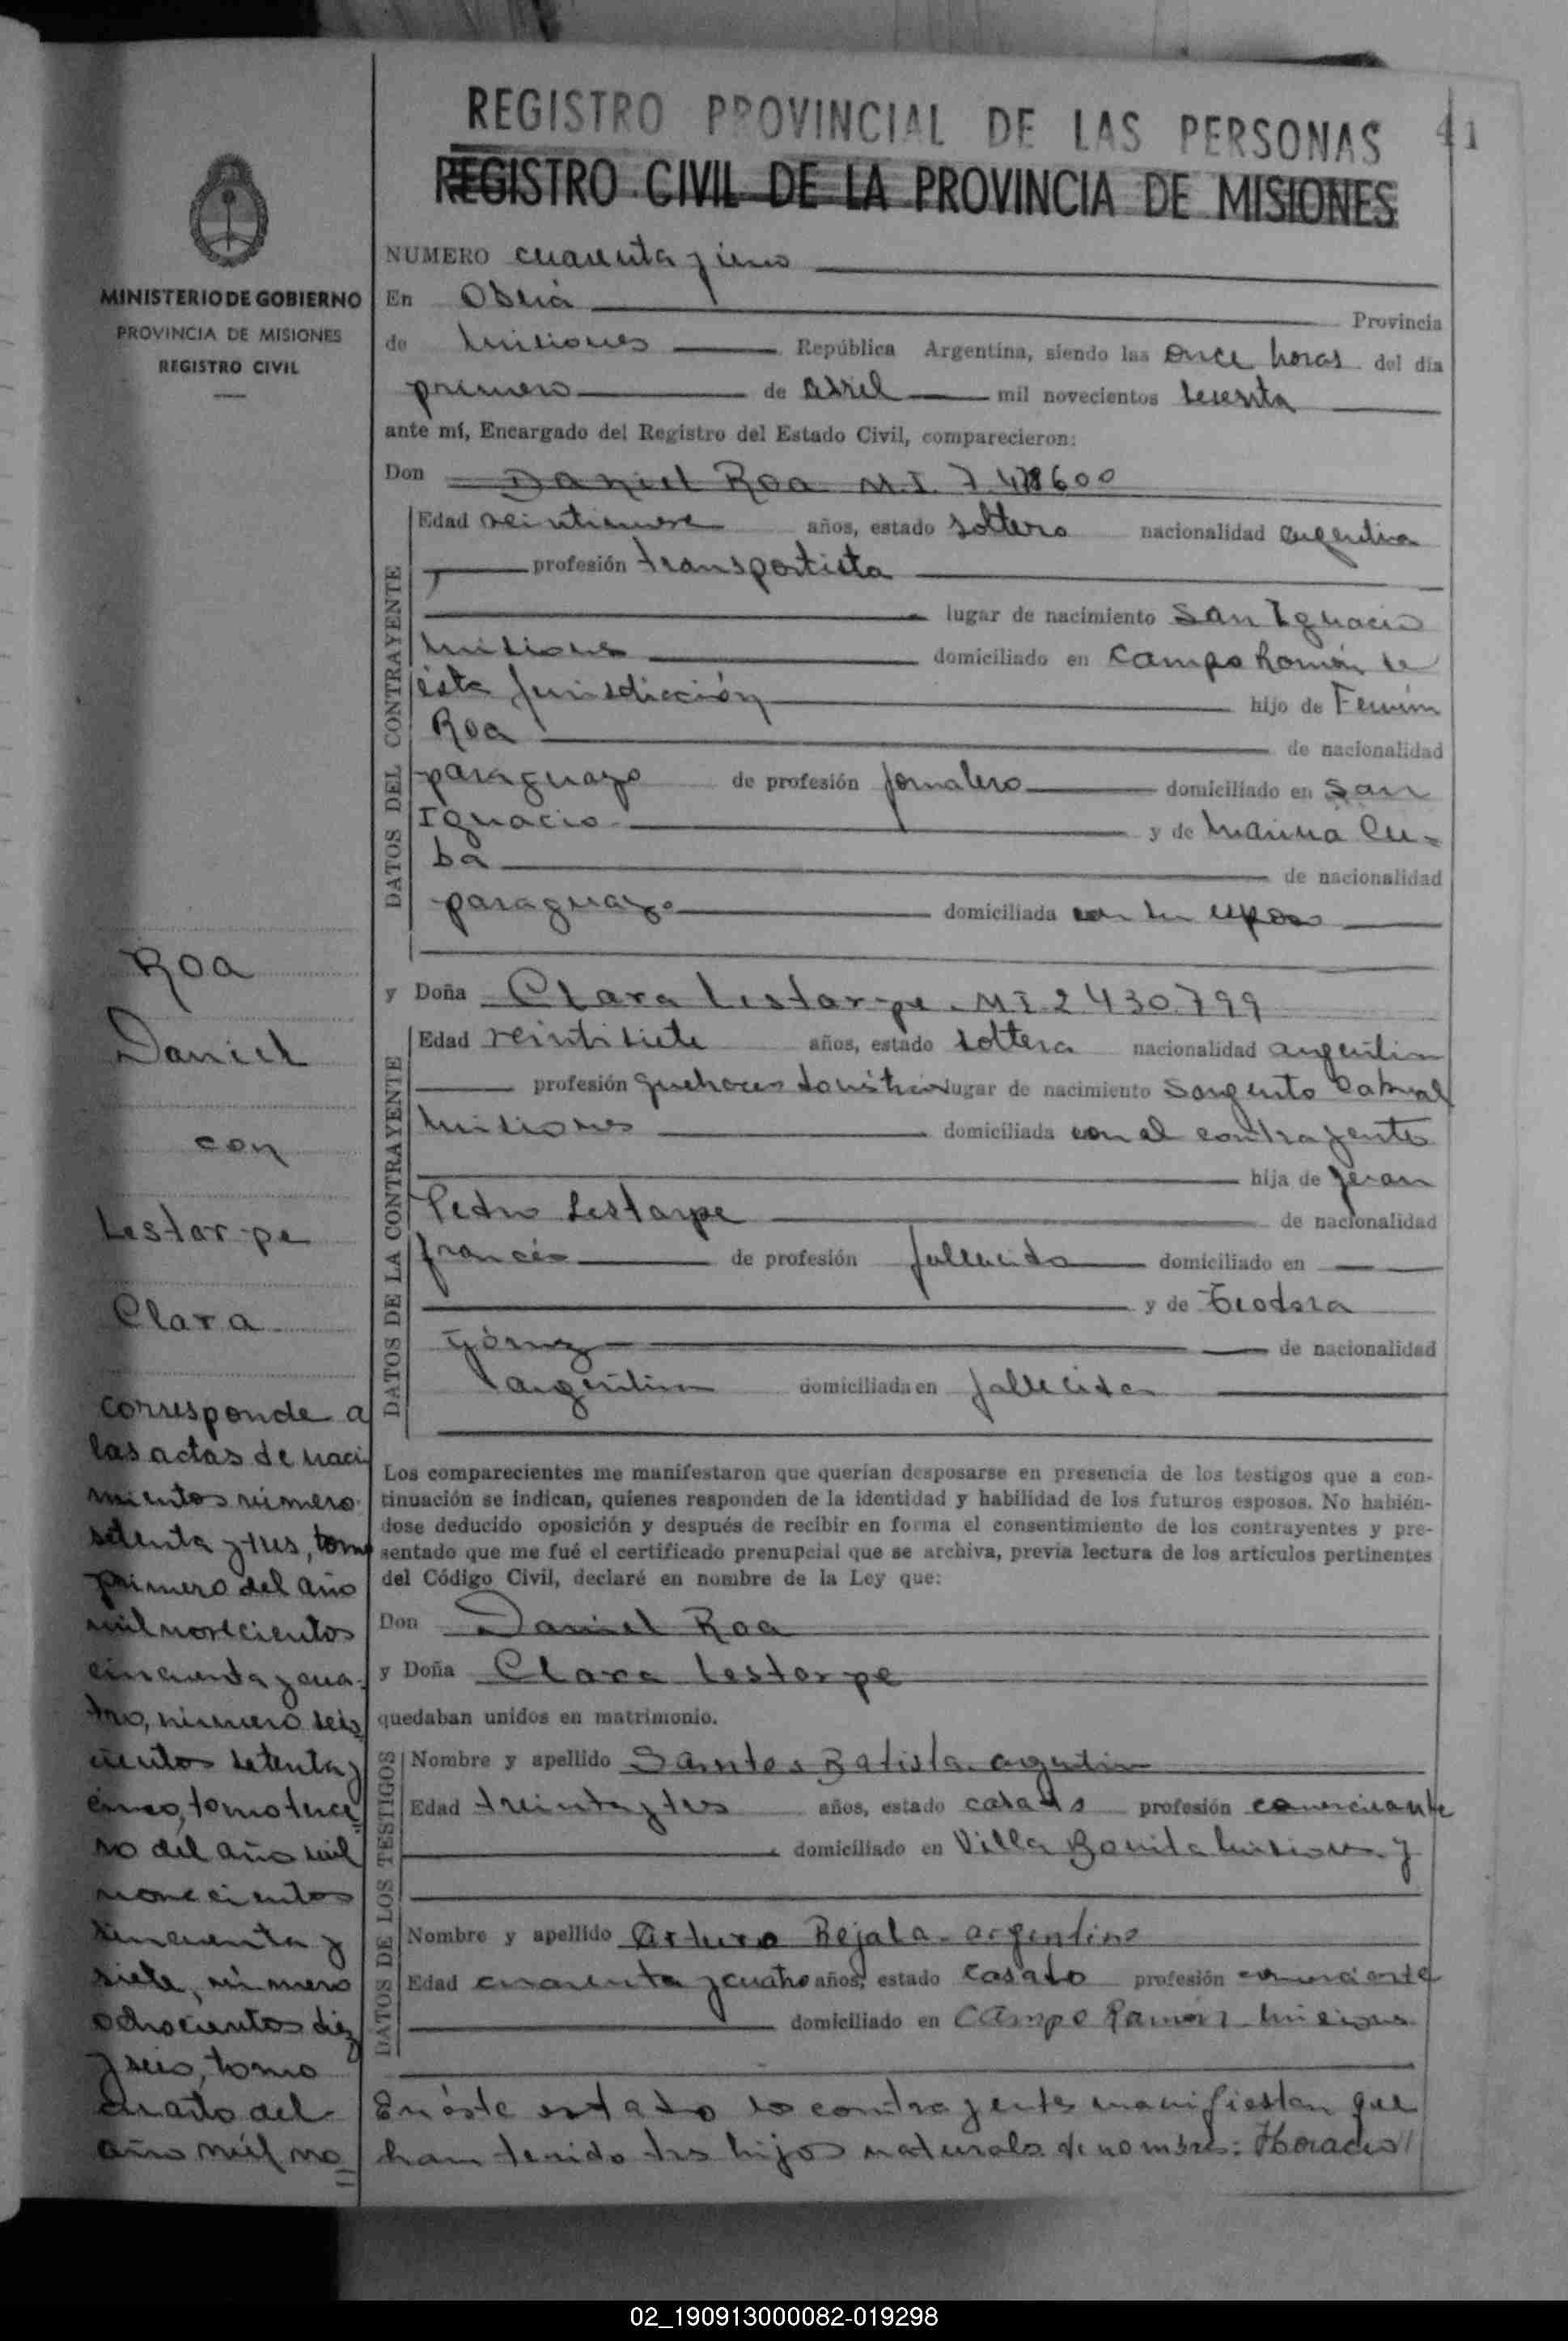 REGISTRO PROVINCIAL DE LAS PERSONAS 41
REGISTRO CIVIL DE LA PROVINCIA DE MISIONES
MINISTERIO DE GOBIERNO
PROVINCIA DE MISIONES
REGISTRO CIVIL
NUMERO cuarenta y uno
En Oberá Provincia
de Misiones República Argentina, siendo las once horas del día
primero de abril mil novecientos sesenta
ante mí, Encargado del Registro del Estado Civil, comparecieron:
Don Daniel Roa M.I. 7.478600
DATOS DEL CONTRAYENTE
Edad veintinueve años, estado soltero nacionalidad argentina
profesión transportista
lugar de nacimiento San Ignacio
Misiones domiciliado en Campo Ramón de
ésta Jurisdicción hijo de Fermín
Roa de nacionalidad
paraguayo de profesión jornalero domiciliado en San
Ignacio y de Marina Cu-
ba de nacionalidad
paraguaya domiciliada con su esposo
y Doña Clara Lestarpe. M I 2.430.799
DATOS DE LA CONTRAYENTE
Edad veintisiete años, estado soltera nacionalidad argentina
profesión quehaceres domésticos lugar de nacimiento Sargento Cabral
Misiones domiciliada con el contrayente
hija de Jean
Pedro Lestarpe de nacionalidad
francés de profesión fallecido domiciliado en
y de Teodora
Gómez de nacionalidad
argentina domiciliada en fallecida
Los comparecientes me manifestaron que querían desposarse en presencia de los testigos que a con-
tinuación se indican, quienes responden de la identidad y habilidad de los futuros esposos. No habién-
dose deducido oposición y después de recibir en forma el consentimiento de los contrayentes y pre-
sentado que me fué el certificado prenupcial que se archiva, previa lectura de los artículos pertinentes
del Código Civil, declaré en nombre de la Ley que:
Don Daniel Roa
y Doña Clara Lestarpe
quedaban unidos en matrimonio.
DATOS DE LOS TESTIGOS
Nombre y apellido Santos Batista argentino
Edad treinta y tres años, estado casado profesión comerciante
domiciliado en Villa Bonita Misiones y
Nombre y apellido Arturo Rejala - argentino
Edad cuarenta y cuatro años, estado casado profesión comerciante
domiciliado en Campo Ramón Misiones
En éste estado los contrayentes manifiestan que
han tenido tres hijos naturales de nombres: Horacio
Roa
Daniel
con
Lestarpe
Clara
corresponde a
las actas de naci
mientos número
setenta y tres, tomo
primero del año
mil novecientos
cincuenta y cua-
tro, número seis
cientos setenta y
cinco, tomo terce
ro del año mil
novecientos
cincuenta y
siete, número
ochocientos diez
y seis, tomo
cuarto del
año mil no=
02_190913000082-019298